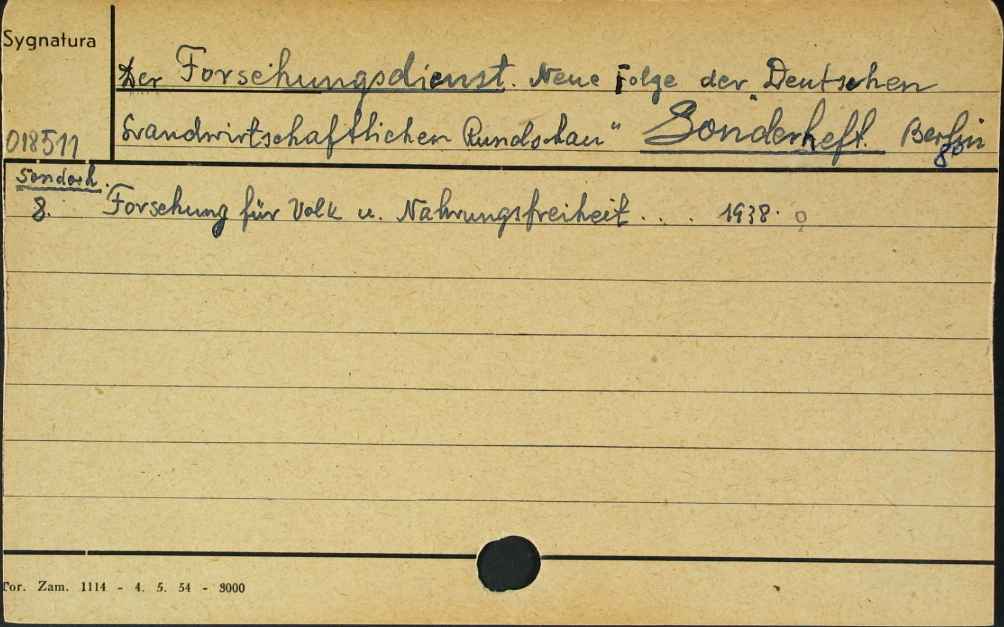 Sygnatura
Der Forschungsdienst. Neue Folge der „Deutschen
Landwirtschaftlichen Rundschau" Sonderheft. Berlin
018511
8°
Sonderh.
8. Forschung für Volk u. Nahrungsfreiheit... 1938.
Tor. Zam. 1114 - 4. 5. 54 - 8000